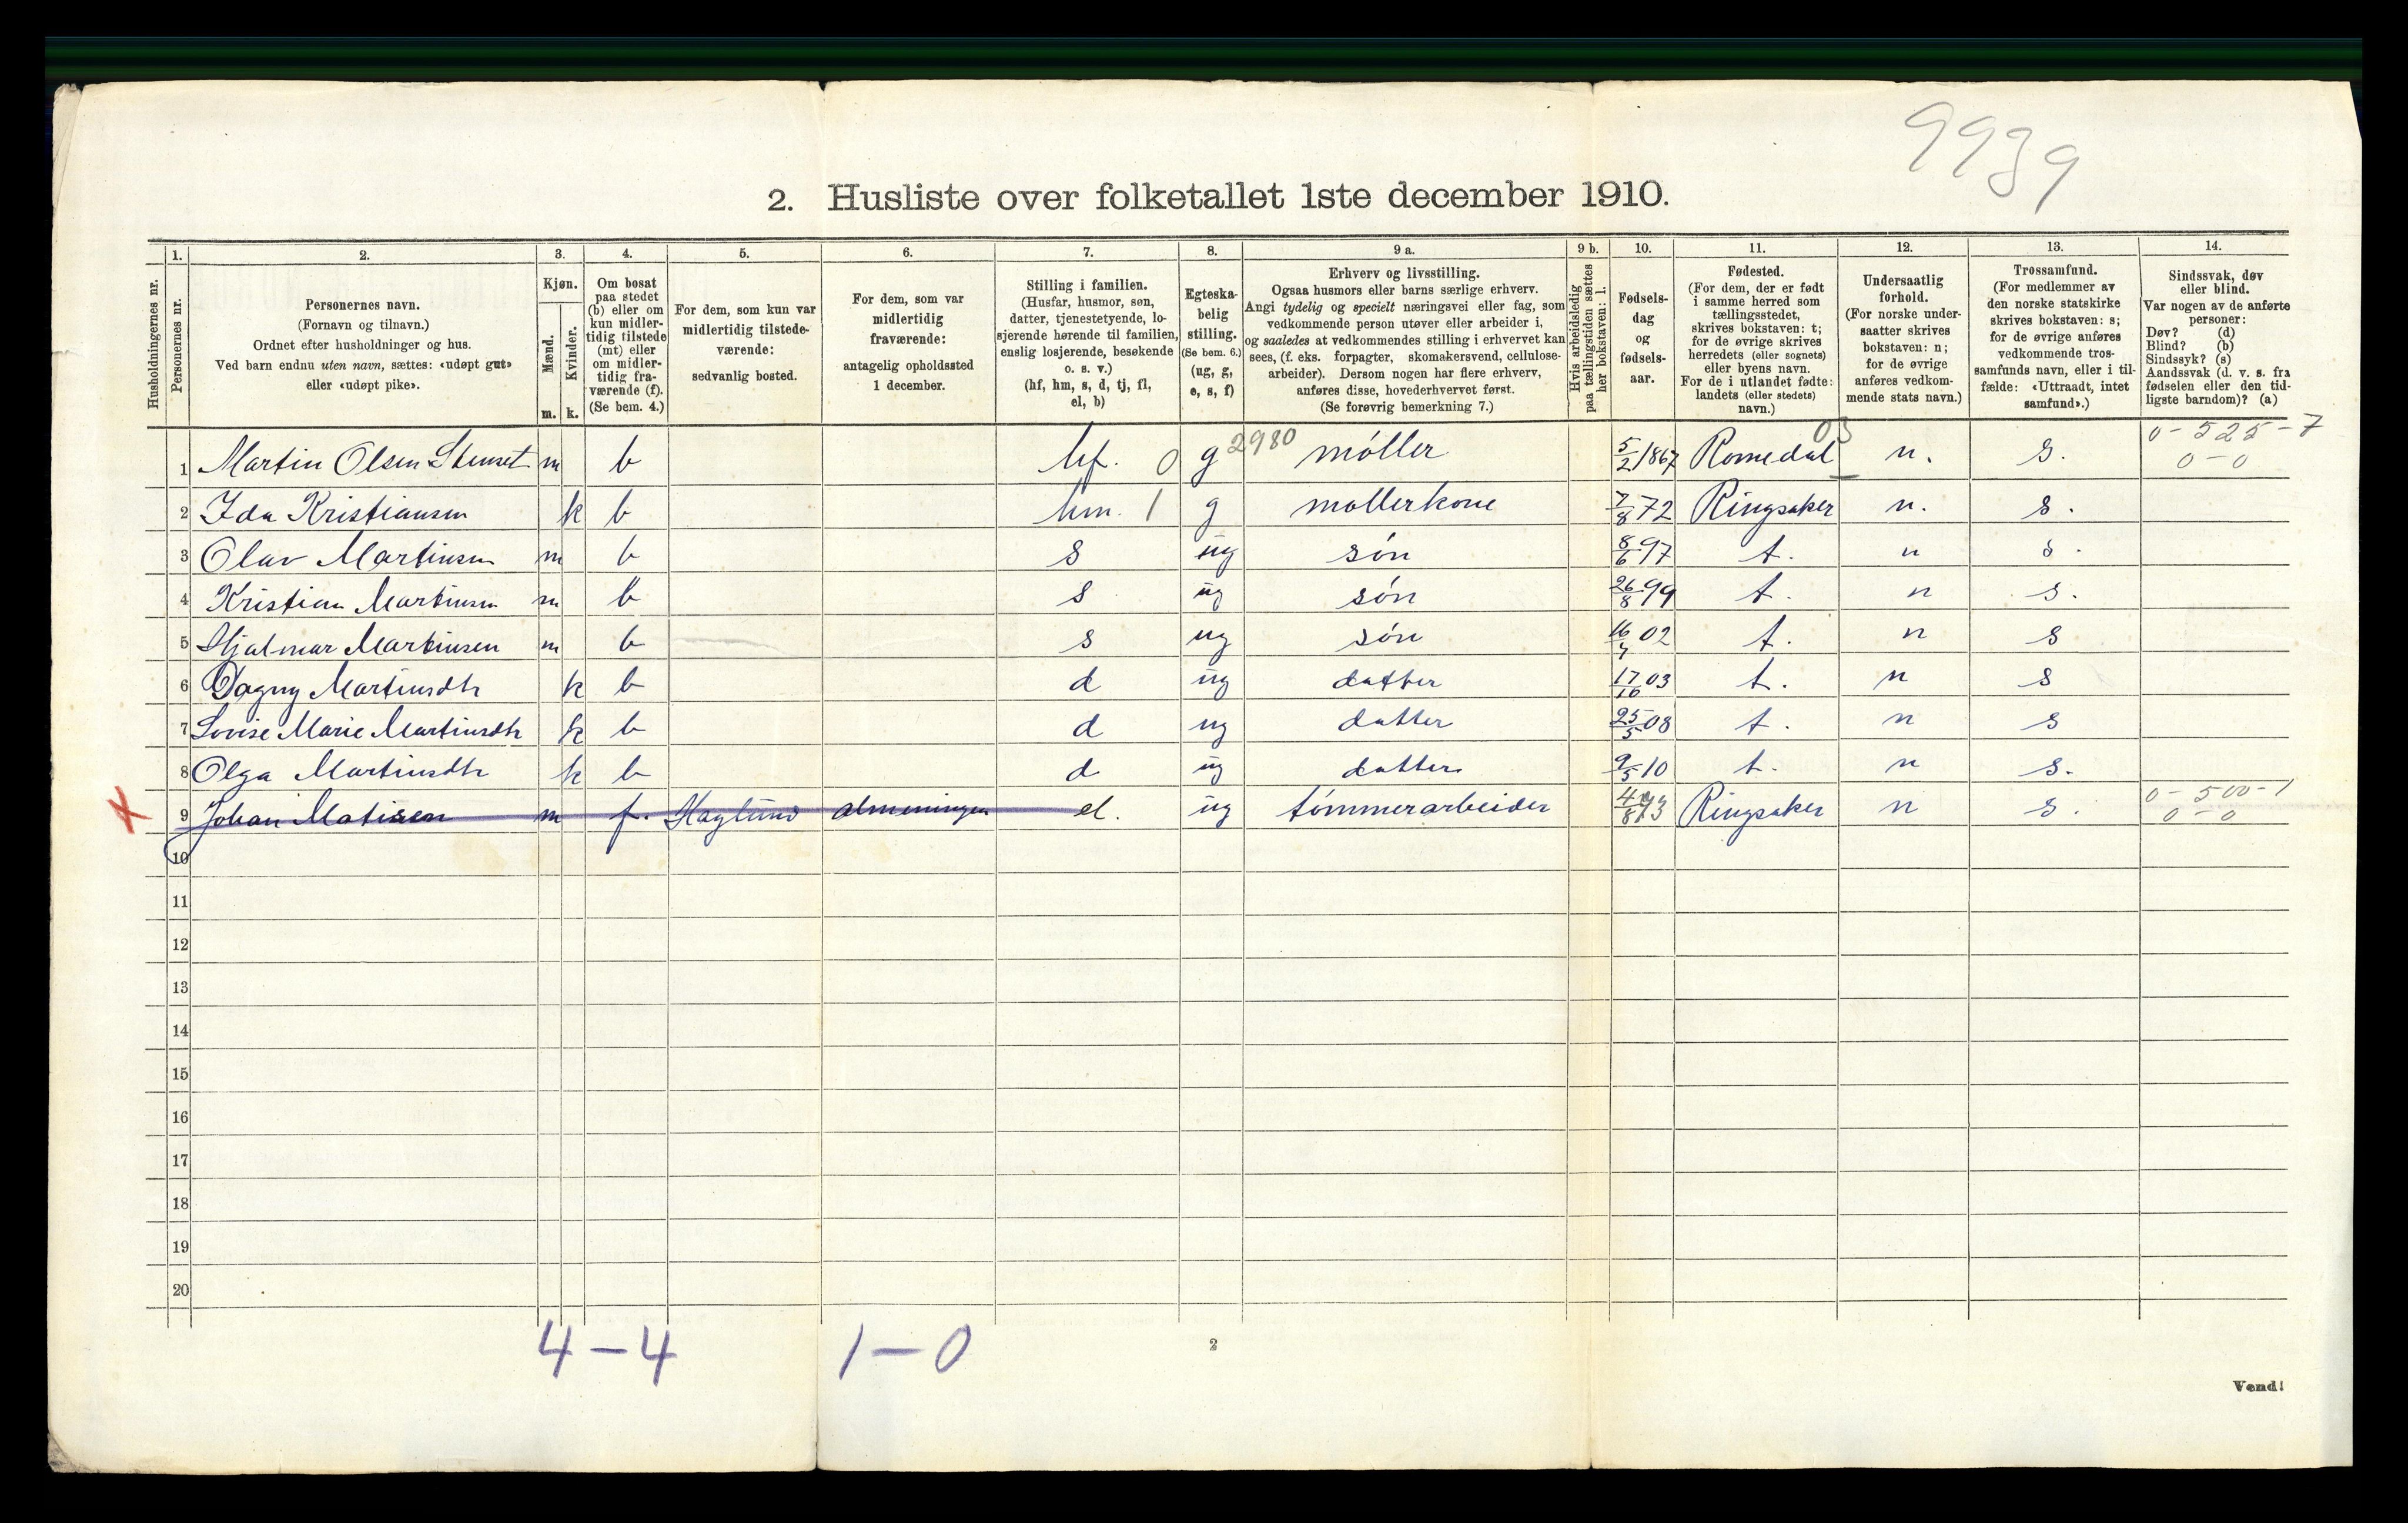 9939
2. Husliste over folketallet 1ste december 1910.
Husholdningernes nr.
1.
Personernes nr.
2.
Personernes navn.
(Fornavn og tilnavn.)
Ordnet efter husholdninger og hus.
Ved barn endnu uten navn, sættes: «udøpt gut»
eller «udøpt pike».
3.
Kjøn.
Mænd.
Kvinder.
m. k.
4.
Om bosat
paa stedet
(b) eller om
kun midler-
tidig tilstede
(mt) eller
om midler-
tidig fra-
værende (f).
(Se bem. 4.)
5.
For dem, som kun var
midlertidig tilstede-
værende:
sedvanlig bosted.
6.
For dem, som var
midlertidig
fraværende:
antagelig opholdssted
1 december.
7.
Stilling i familien.
(Husfar, husmor, søn,
datter, tjenestetyende, lo-
sjerende hørende til familien,
enslig losjerende, besøkende
o. s. v.)
(hf, hm, s, d, tj, fl,
el, b)
8.
Egteska-
belig
stilling.
(Se bem. 6.)
(ug, g,
e, s, f)
9 a.
Erhverv og livsstilling.
Ogsaa husmors eller barns særlige erhverv.
Angi tydelig og specielt næringsvei eller fag, som
vedkommende person utøver eller arbeider i,
og saaledes at vedkommendes stilling i erhvervet kan
sees, (f. eks. forpagter, skomakersvend, cellulose-
arbeider). Dersom nogen har flere erhverv,
anføres disse, hovederhvervet først.
(Se forøvrig bemerkning 7.)
9 b.
Hvis arbeidsledig
paa tællingstiden sættes
her bokstaven: l.
10.
Fødsels-
dag
og
fødsels-
aar.
11.
Fødested.
(For dem, der er født
i samme herred som
tællingsstedet,
skrives bokstaven: t;
for de øvrige skrives
herredets (eller sognets)
eller byens navn.
For de i utlandet fødte:
landets (eller stedets)
navn.)
12.
Undersaatlig
forhold.
(For norske under-
saatter skrives
bokstaven: n;
for de øvrige
anføres vedkom-
mende stats navn.)
13.
Trossamfund.
(For medlemmer av
den norske statskirke
skrives bokstaven: s;
for de øvrige anføres
vedkommende tros-
samfunds navn, eller i til-
fælde: «Uttraadt, intet
samfund».)
14.
Sindssvak, døv
eller blind.
Var nogen av de anførte
personer:
Døv? (d)
Blind? (b)
Sindssyk? (s)
Aandssvak (d. v. s. fra
fødselen eller den tid-
ligste barndom)? (a)
1 Martin Olsen Stenset m b hf. 0 g 2980 møller 5/2 1867 Romedal 03 n. s. 0-525-7 0-0
2 Ida Kristiansen k b hm. 1 g møllerkone 7/8 72 Ringsaker n. s.
3 Olav Martinsen m b s ug søn 8/6 97 t. n s.
4 Kristian Martinsen m b s ug søn 26/8 99 t. n s.
5 Hjalmar Martinsen m b s ug søn 16/4 02 t. n s
6 Dagny Martinsdtr k b d ug datter 17/10 03 t. n s
7 Lovise Marie Martinsdtr k b d ug datter 25/5 08 t. n s
8 Olga Martinsdtr k b d ug datter 9/5 10 t. n s.
X 9 Johan Matisen m f. Haglund almeningen el. ug tømmerarbeider Ringsaker n s. 0-500-1 0-0
10
11
12
13
14
15
16
17
18
19
20
4-4 1-0
2
Vend!